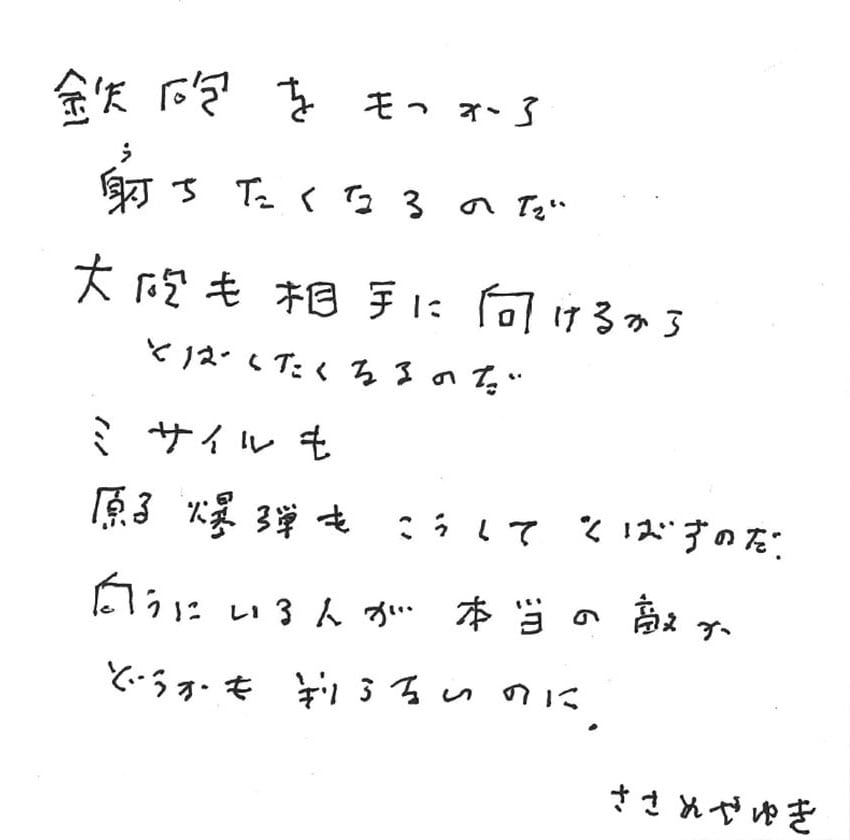 鉄砲をもつから
射ちたくなるのだ
大砲も相手に向けるから
とばしたくなるのだ
ミサイルも
原子爆弾もこうしてとばすのだ.
向うにいる人が本当の敵か
どうかも判らないのに.
ささめやゆき